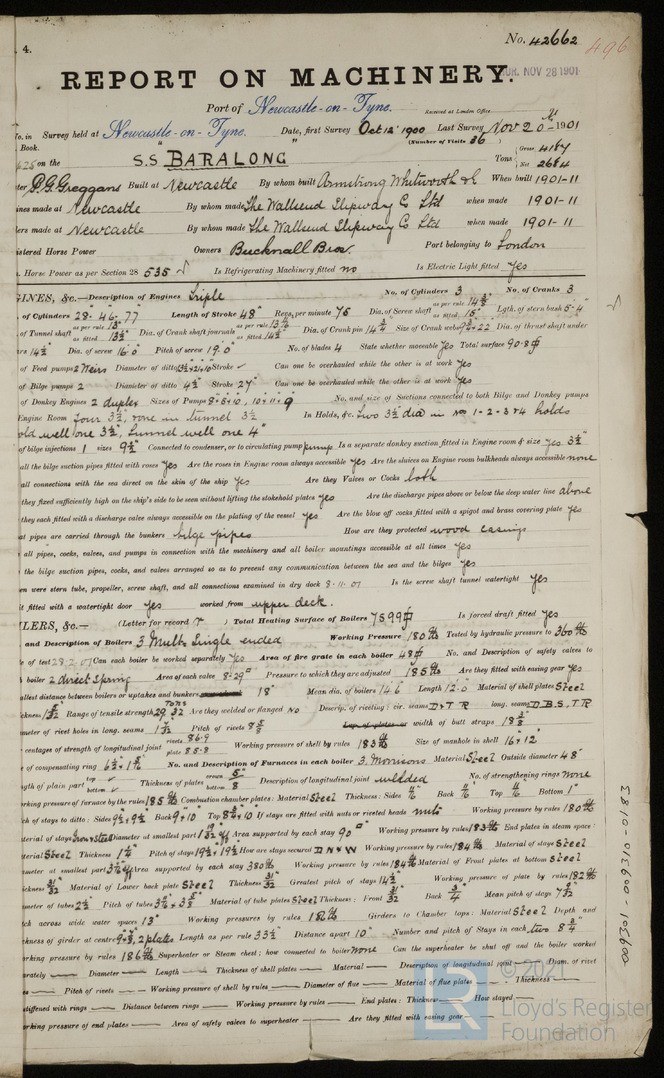 4.
No. 42662
496
REPORT ON MACHINERY.
NOV 28 1901
Port of Newcastle-on-Tyne.
Received at London Office
No. in Survey held at Newcastle-on-Tyne. Date, first Survey Oct 12' 1900 Last Survey Nov 20th 1901
Book. (Number of Visits 36)
625 on the S.S "BARALONG" Tons Gross 4187 Net 2684
P.G. Greggans Built at Newcastle By whom built Armstrong Whitworth & Co When built 1901-11
ines made at Newcastle By whom made The Wallsend Slipway Co Ltd when made 1901-11
ers made at Newcastle By whom made The Wallsend Slipway Co Ltd when made 1901-11
istered Horse Power Owners Bucknall Bros. Port belonging to London
. Horse Power as per Section 28 535 Is Refrigerating Machinery fitted no Is Electric Light fitted yes
GINES, &c.—Description of Engines Triple No. of Cylinders 3 No. of Cranks 3
. of Cylinders 28-46-77 Length of Stroke 48" Revs. per minute 75 Dia. of Screw shaft as per rule as fitted 15" Lgth. of stern bush 5-4"
. of Tunnel shaft as per rule 13" as fitted 13½" Dia. of Crank shaft journals as per rule as fitted 14½" Dia. of Crank pin 14¾" Size of Crank webs Dia. of thrust shaft under
rs 14½" Dia. of screw 16.0" Pitch of screw 19.0" No. of blades 4 State whether moveable yes Total surface 90.8
of Feed pumps 2 Weirs Diameter of ditto Stroke Can one be overhauled while the other is at work yes
of Bilge pumps 2 Diameter of ditto 4½ Stroke 27" Can one be overhauled while the other is at work yes
of Donkey Engines 2 duplex Sizes of Pumps No. and size of Suctions connected to both Bilge and Donkey pumps
Engine Room four 3½, one in tunnel 3½ In Holds, &c. two 3½ dia in No 1-2-3 & 4 holds
old well one 3½, tunnel well one 4"
of bilge injections 1 sizes 9½" Connected to condenser, or to circulating pump pump Is a separate donkey suction fitted in Engine room & size yes 3½
all the bilge suction pipes fitted with roses yes Are the roses in Engine room always accessible yes Are the sluices on Engine room bulkheads always accessible none
all connections with the sea direct on the skin of the ship yes Are they Valves or Cocks both
they fixed sufficiently high on the ship's side to be seen without lifting the stokehold plates yes Are the discharge pipes above or below the deep water line above
they each fitted with a discharge valve always accessible on the plating of the vessel yes Are the blow off cocks fitted with a spigot and brass covering plate yes
at pipes are carried through the bunkers bilge pipes How are they protected wood casings
all pipes, cocks, valves, and pumps in connection with the machinery and all boiler mountings accessible at all times yes
the bilge suction pipes, cocks, and valves arranged so as to prevent any communication between the sea and the bilges yes
en were stern tube, propeller, screw shaft, and all connections examined in dry dock 8.11.01 Is the screw shaft tunnel watertight yes
it fitted with a watertight door yes worked from upper deck.
ILERS, &c.— (Letter for record r) Total Heating Surface of Boilers 7599 Is forced draft fitted yes
and Description of Boilers 3 Mult. Single ended Working Pressure 180 lbs Tested by hydraulic pressure to 360 lbs
e of test Can each boiler be worked separately yes Area of fire grate in each boiler 48 No. and Description of safety valves to
boiler 2 direct spring Area of each valve 8.29 Pressure to which they are adjusted 185 lbs Are they fitted with easing gear yes
allest distance between boilers or uptakes and bunkers 18" Mean dia. of boilers 14.6" Length 12.0" Material of shell plates Steel
ckness Range of tensile strength 29-32 Tons Are they welded or flanged no Descrip. of riveting: cir. seams D&TR long. seams D.B.S.T.R
meter of rivet holes in long. seams Pitch of rivets Lap of plates or width of butt straps
centages of strength of longitudinal joint rivets 86.9 plate 85.8 Working pressure of shell by rules 183 lbs Size of manhole in shell 16 x 12"
e of compensating ring No. and Description of Furnaces in each boiler 3. Morrisons Material Steel Outside diameter 48"
ngth of plain part top bottom Thickness of plates crown bottom Description of longitudinal joint welded No. of strengthening rings none
orking pressure of furnace by the rules 185 lbs Combustion chamber plates: Material Steel Thickness: Sides Back Top Bottom 1"
ch of stays to ditto: Sides Back 9x10 Top If stays are fitted with nuts or riveted heads nuts Working pressure by rules 180 lbs
aterial of stays Iron & Steel Diameter at smallest part Area supported by each stay 90 Working pressure by rules 183 lbs End plates in steam space:
terial Steel Thickness Pitch of stays How are stays secured D N & W Working pressure by rules 184 lbs Material of stays Steel
meter at smallest part Area supported by each stay 380 Working pressure by rules 184 lbs Material of Front plates at bottom Steel
ickness Material of Lower back plate Steel Thickness Greatest pitch of stays 14½ Working pressure of plate by rules 182 lbs
meter of tubes 2½ Pitch of tubes Material of tube plates Steel Thickness: Front Back Mean pitch of stays
ch across wide water spaces 13" Working pressures by rules Girders to Chamber tops: Material Steel Depth and
ckness of girder at centre Length as per rule 33½ Distance apart 10" Number and pitch of Stays in each two 8¾
rking pressure by rules 186 lbs Superheater or Steam chest; how connected to boiler none Can the superheater be shut off and the boiler worked
arately Diameter Length Thickness of shell plates Material Description of longitudinal joint Diam. of rivet
es Pitch of rivets Working pressure of shell by rules Diameter of flue Material of flue plates Thickness
stiffened with rings Distance between rings Working pressure by rules End plates: Thickness How stayed
orking pressure of end plates Area of safety valves to superheater Are they fitted with easing gear
009301-009310-0183
© 2021
LR
Lloyd's Register
Foundation